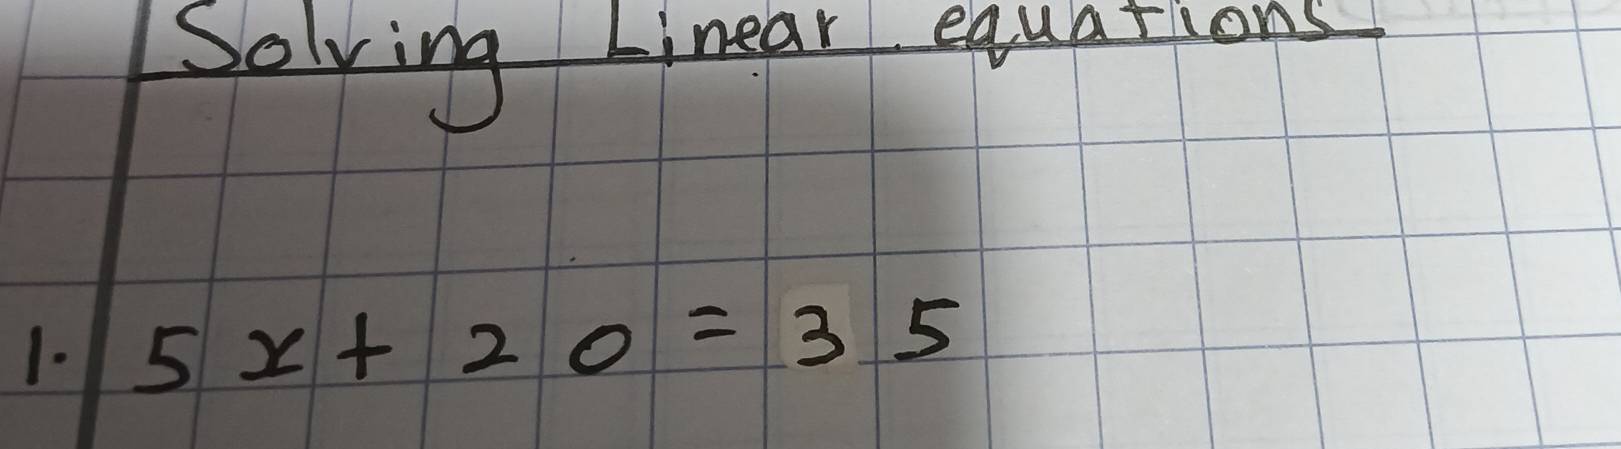 Solving Linear equations
1. 5x + 20 = 35